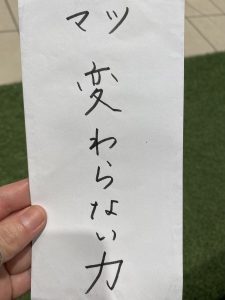 マツ
変わらない力